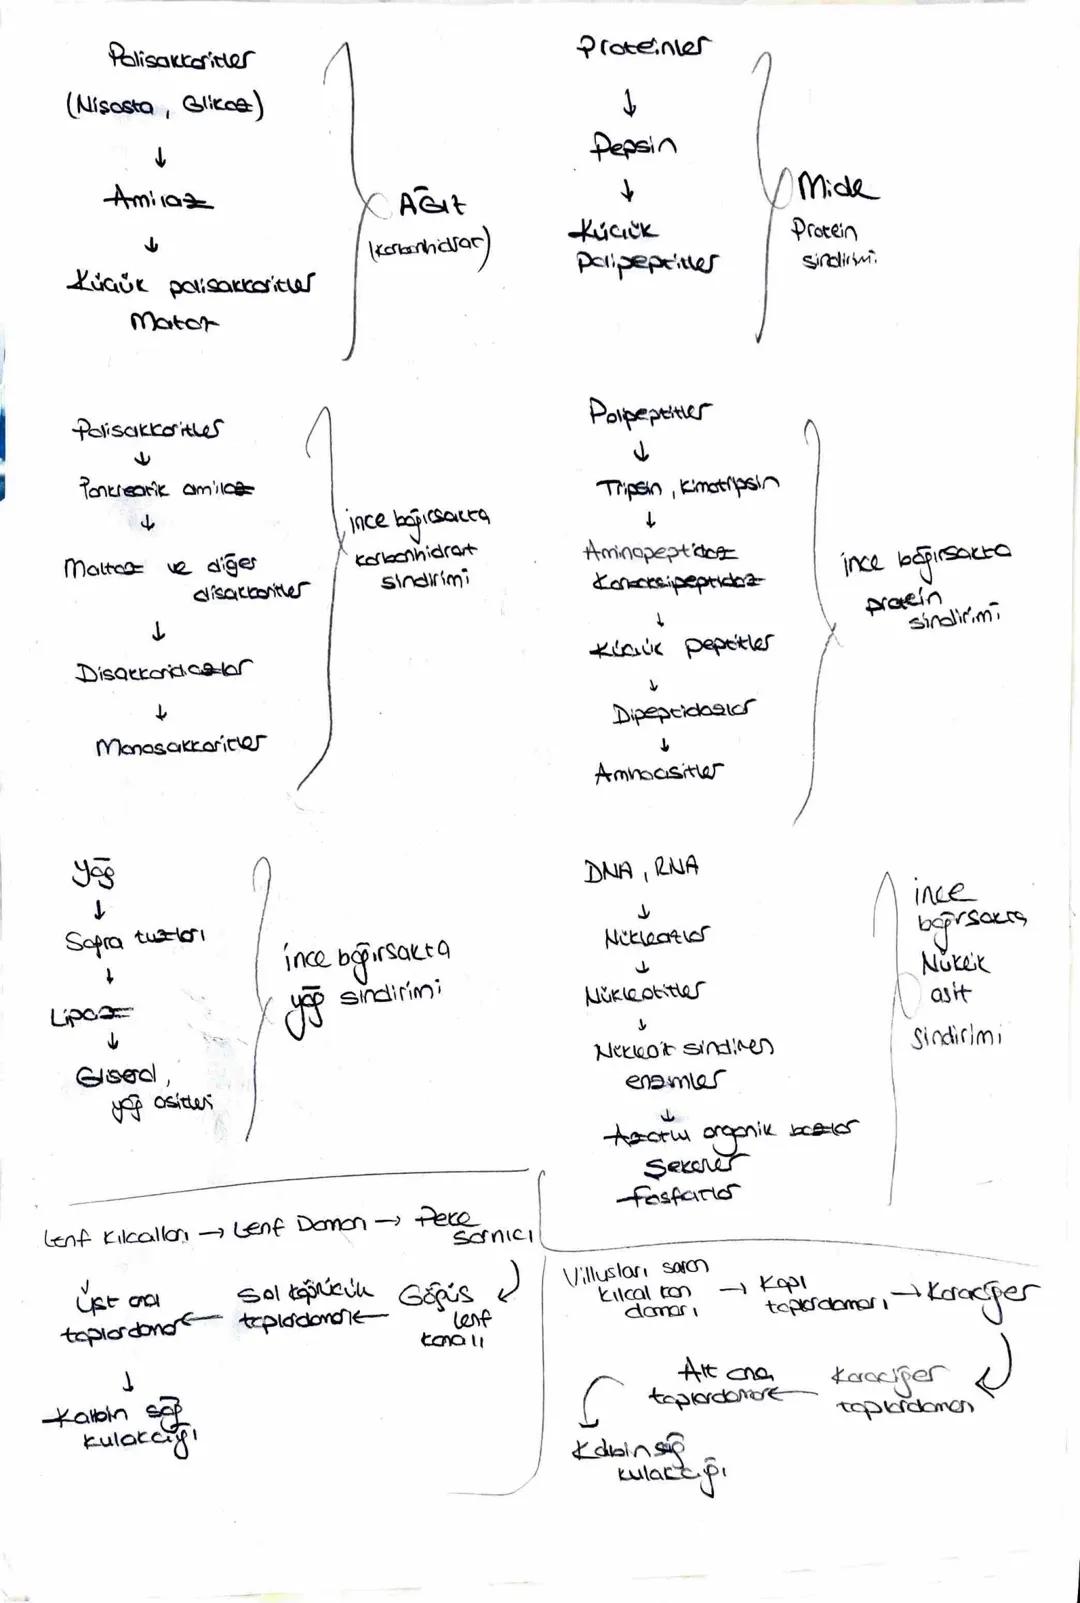 Polisakkaritler
(Nişasta, Glikoz)
↓
Amilaz
↓
Küçük polisakkaritler
Maltoz
AĞIZ
(karbonhidrat)
Proteinler
↓
Pepsin
↓
Küçük
polipeptitler
Mide
Protein
sindirimi.
Polisakkaritler
↓
Pankreatik amilaz
↓
Maltoz ve diğer
disakkaritler
↓
Disakkaridazlar
↓
Monosakkaritler
ince bağırsakta
karbonhidrart
sindirimi
Polipeptitler
↓
Tripsin, kimotripsin
↓
Aminopeptidaz
Karboksipeptidaz
↓
Küçük peptitler
↓
Dipeptidazlar
↓
Aminoasitler
ince bağırsakta
protein
sindirimi
Yağ
↓
Safra tuzları
↓
Lipaz
↓
Gliserol,
yağ asitleri
ince bağırsakta
yağ sindirimi
DNA, RNA
↓
Nükleazlar
↓
Nükleotitler
↓
Nükleotit sindiren
enzimler
↓
Azotlu organik bazlar
Şekerler
Fosfatlar
ince
bağırsakta
Nükleik
asit
sindirimi
Lenf kılcalları → Lenf Damarı → Peke
sarnıcı
Göğüs
lenf
kanalı
Sol köprücük
toplardamarı
Üst ana
toplardamar
↓
Kalbin sağ
kulakcığı
Villusları saran
kılcal kan
damarı
→ Kapı
toplardamarı
→ Karaciğer
Karaciğer
toplardamarı
Alt ana
toplardamar
Kalbin sağ
kulakcığı